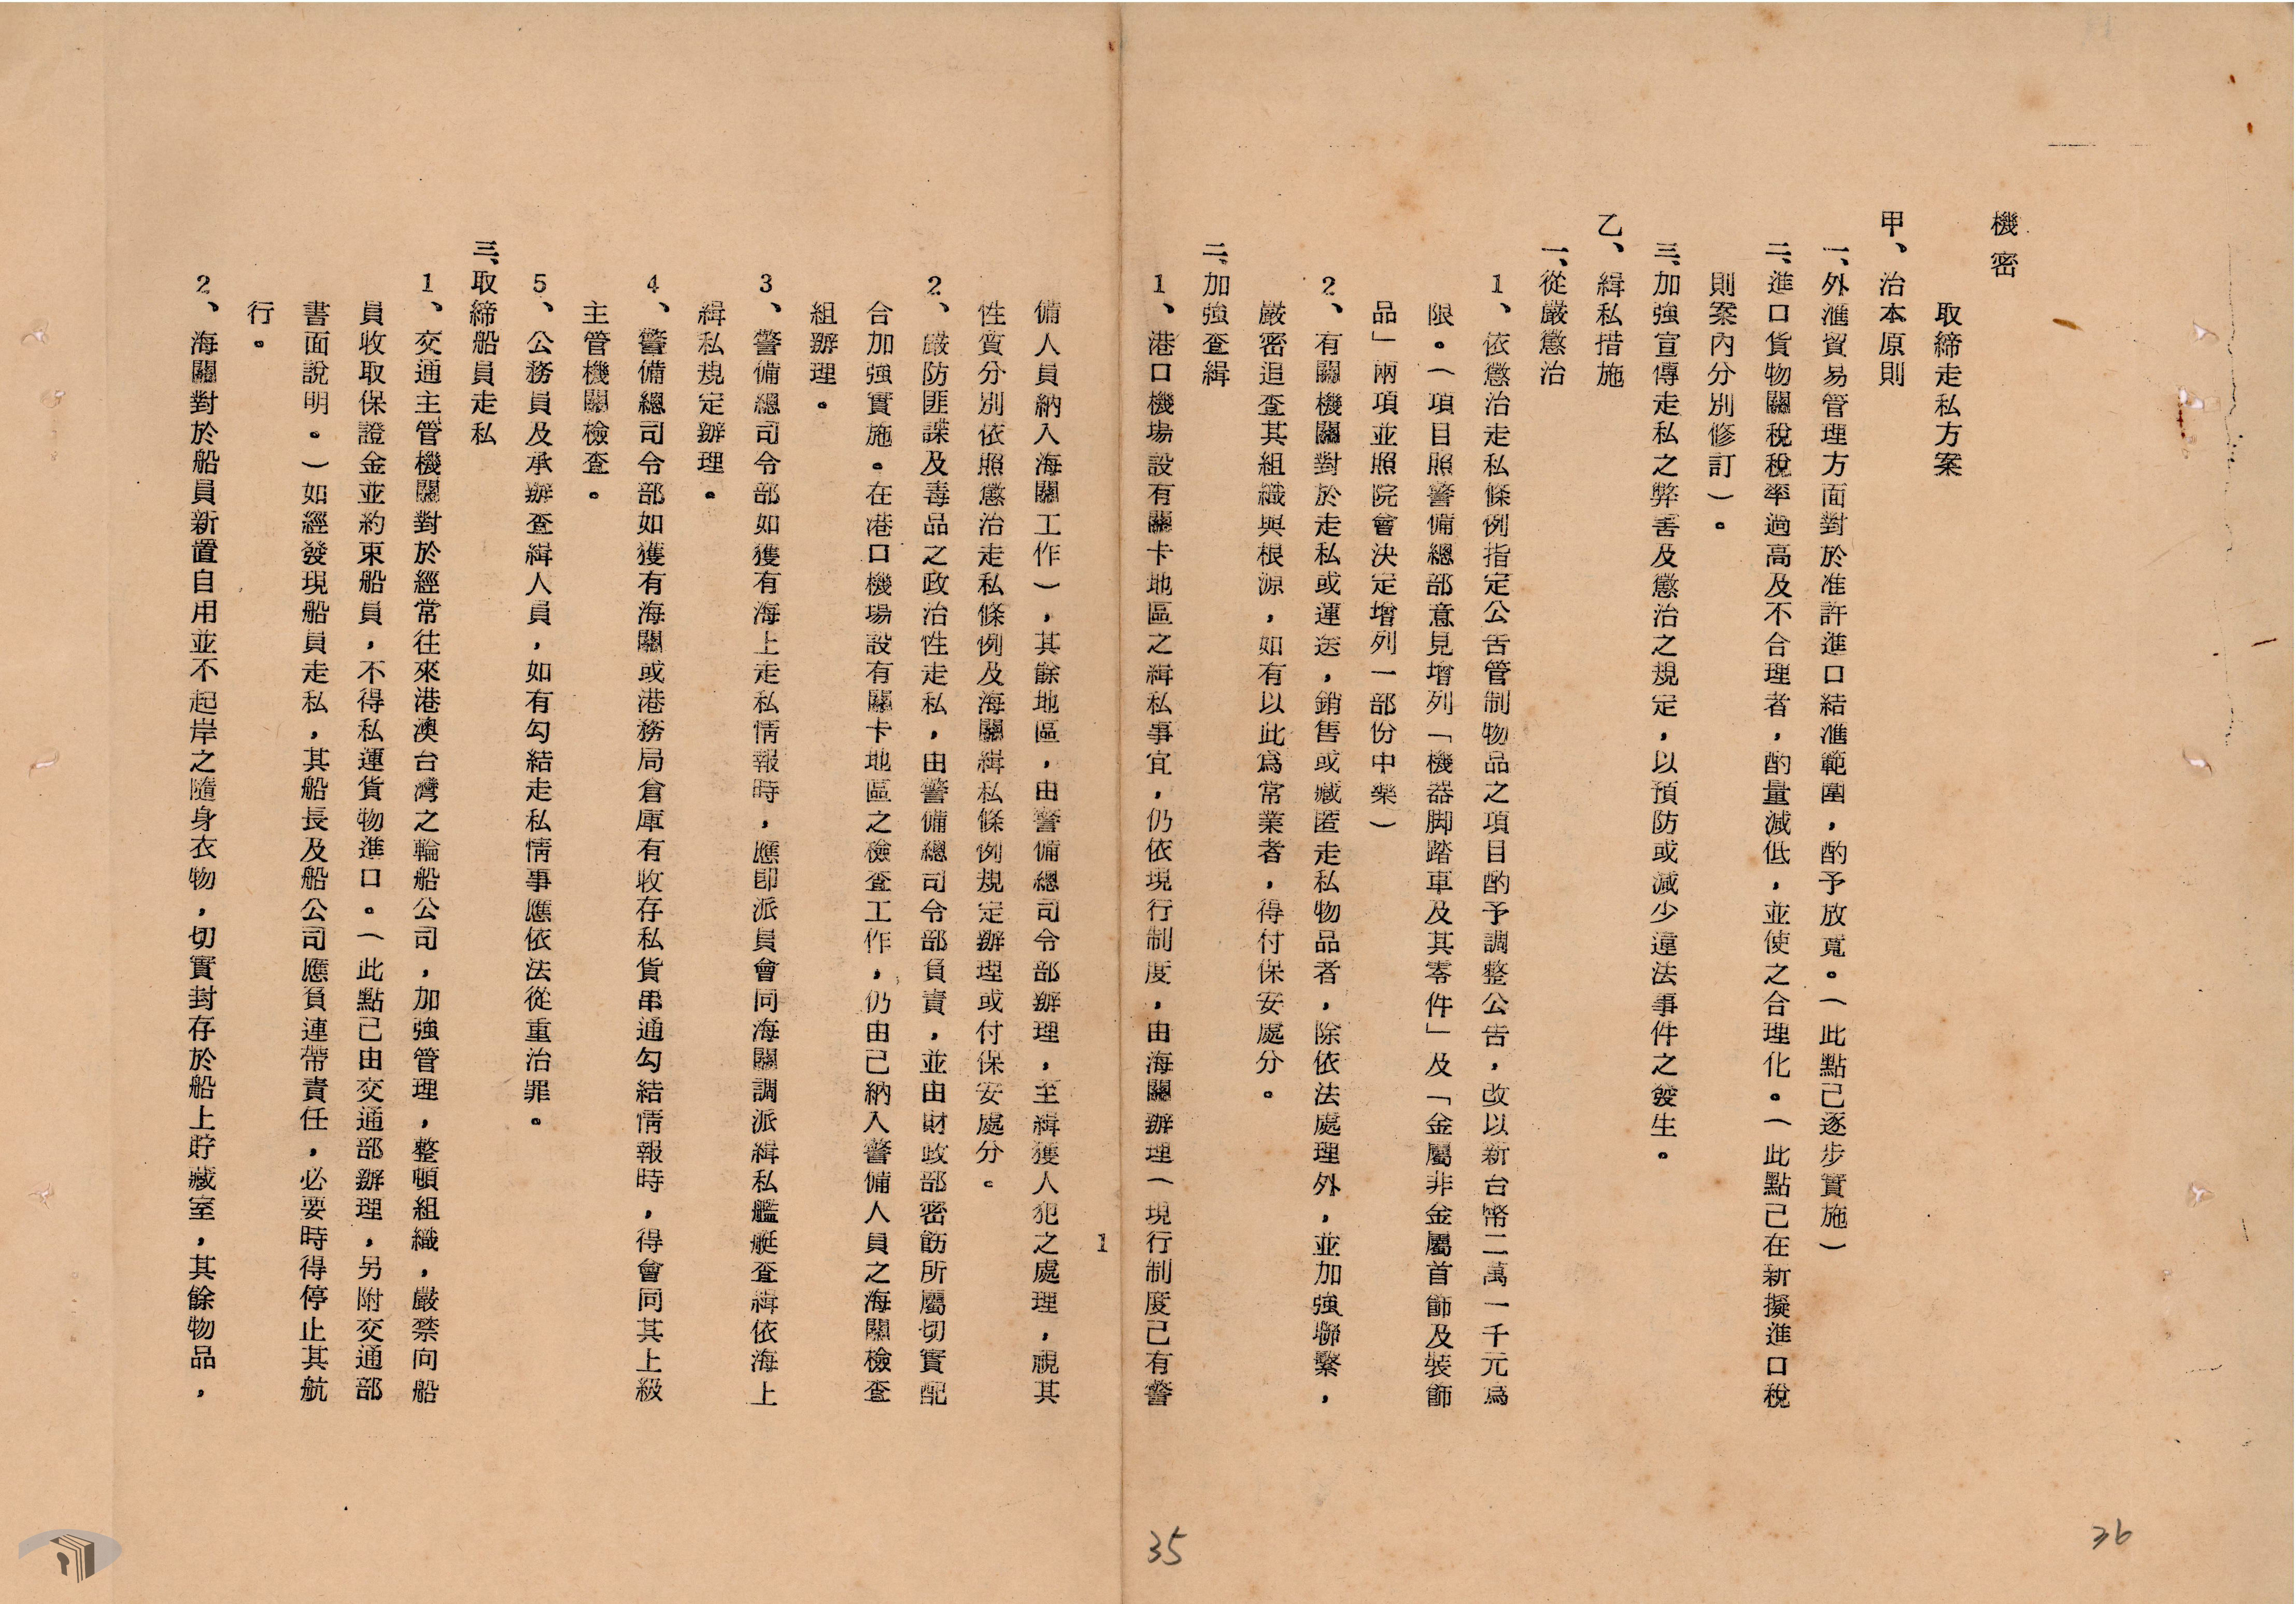 機密
取締走私方案
甲、治本原則
一、外滙貿易管理方面對於准許進口結滙範圍，酌予放寬。（此點已逐步實施）
二、進口貨物關稅稅率過高及不合理者，酌量減低，並使之合理化。（此點已在新擬進口稅
則案內分別修訂）。
三、加強宣傳走私之弊害及懲治之規定，以預防或減少違法事件之發生。
乙、緝私措施
一、從嚴懲治
1、依懲治走私條例指定公告管制物品之項目酌予調整公告，改以新台幣二萬一千元爲
限。（項目照警備總部意見增列「機器脚踏車及其零件」及「金屬非金屬首飾及裝飾
品」兩項並照院會決定增列一部份中藥）
2、有關機關對於走私或運送，銷售或藏匿走私物品者，除依法處理外，並加強聯繫，
嚴密追查其組織與根源，如有以此爲常業者，得付保安處分。
二、加強查緝
1、港口機場設有關卡地區之緝私事宜，仍依現行制度，由海關辦理（現行制度已有警
備人員納入海關工作），其餘地區，由警備總司令部辦理，至緝獲人犯之處理，視其
性質分別依照懲治走私條例及海關緝私條例規定辦理或付保安處分。
2、嚴防匪諜及毒品之政治性走私，由警備總司令部負責，並由財政部密飭所屬切實配
合加強實施。在港口機場設有關卡地區之檢查工作，仍由已納入警備人員之海關檢查
組辦理。
3、警備總司令部如獲有海上走私情報時，應卽派員會同海關調派緝私艦艇查緝依海上
緝私規定辦理。
4、警備總司令部如獲有海關或港務局倉庫有收存私貨串通勾結情報時，得會同其上級
主管機關檢查。
5、公務員及承辦查緝人員，如有勾結走私情事應依法從重治罪。
三、取締船員走私
1、交通主管機關對於經常往來港澳台灣之輪船公司，加強管理，整頓組織，嚴禁向船
員收取保證金並約束船員，不得私運貨物進口。（此點已由交通部辦理，另附交通部
書面說明。）如經發現船員走私，其船長及船公司應負連帶責任，必要時得停止其航
行。
2、海關對於船員新置自用並不起岸之隨身衣物，切實封存於船上貯藏室，其餘物品，
1
35
36